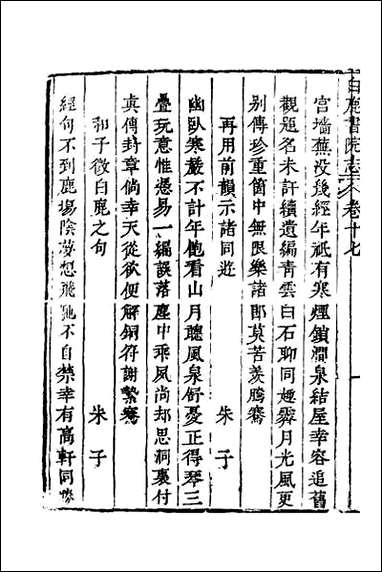 白鹿書院志 卷十七
宮墻蕪没幾經年祇有寒煙鎖澗泉結屋幸容追舊
觀題名未許續遺編青雲白石聊同趣霽月光風更
别傳珍重箇中無限樂諸郎莫苦羡騰騫
再用前韻示諸同遊 朱子
幽臥寒巖不計年飽看山月聽風泉舒憂正得琴三
疊玩意惟慿易一編誤落塵中乘風尚却思洞裏付
真傳封章倘幸天從欲便解銅符謝縶騫
和子徵白鹿之句 朱子
經旬不到鹿場陰夢想飛馳不自禁幸有高軒同勝